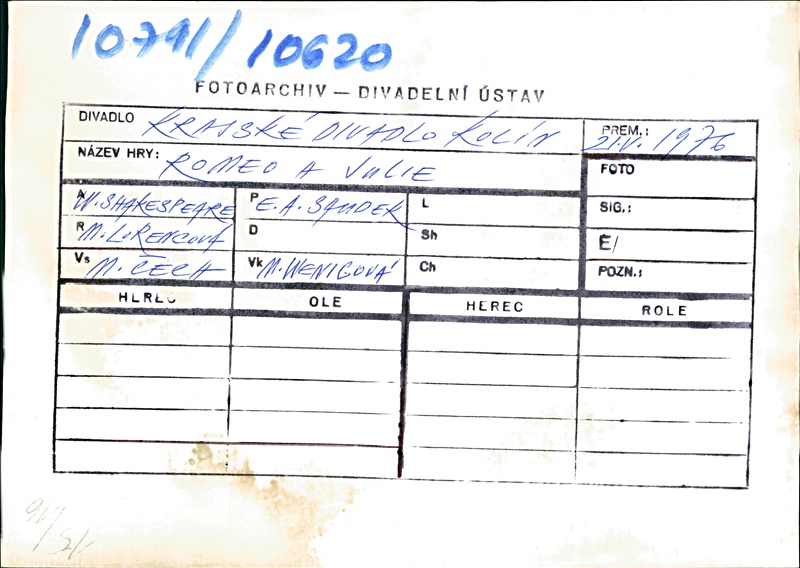 10791/10620
FOTOARCHIV — DIVADELNÍ ÚSTAV
DIVADLO KRAJSKÉ DIVADLO KOLÍN
PREM.: 21.V. 1976
NÁZEV HRY: ROMEO A JULIE
FOTO
A W. SHAKESPEARE P E. A. SAUDEK L
SIG.:
R M. LORENCOVÁ D Sh
É/
Vs M. ČECH Vk M. WENIGOVÁ Ch
POZN.:
HEREC OLE HEREC ROLE